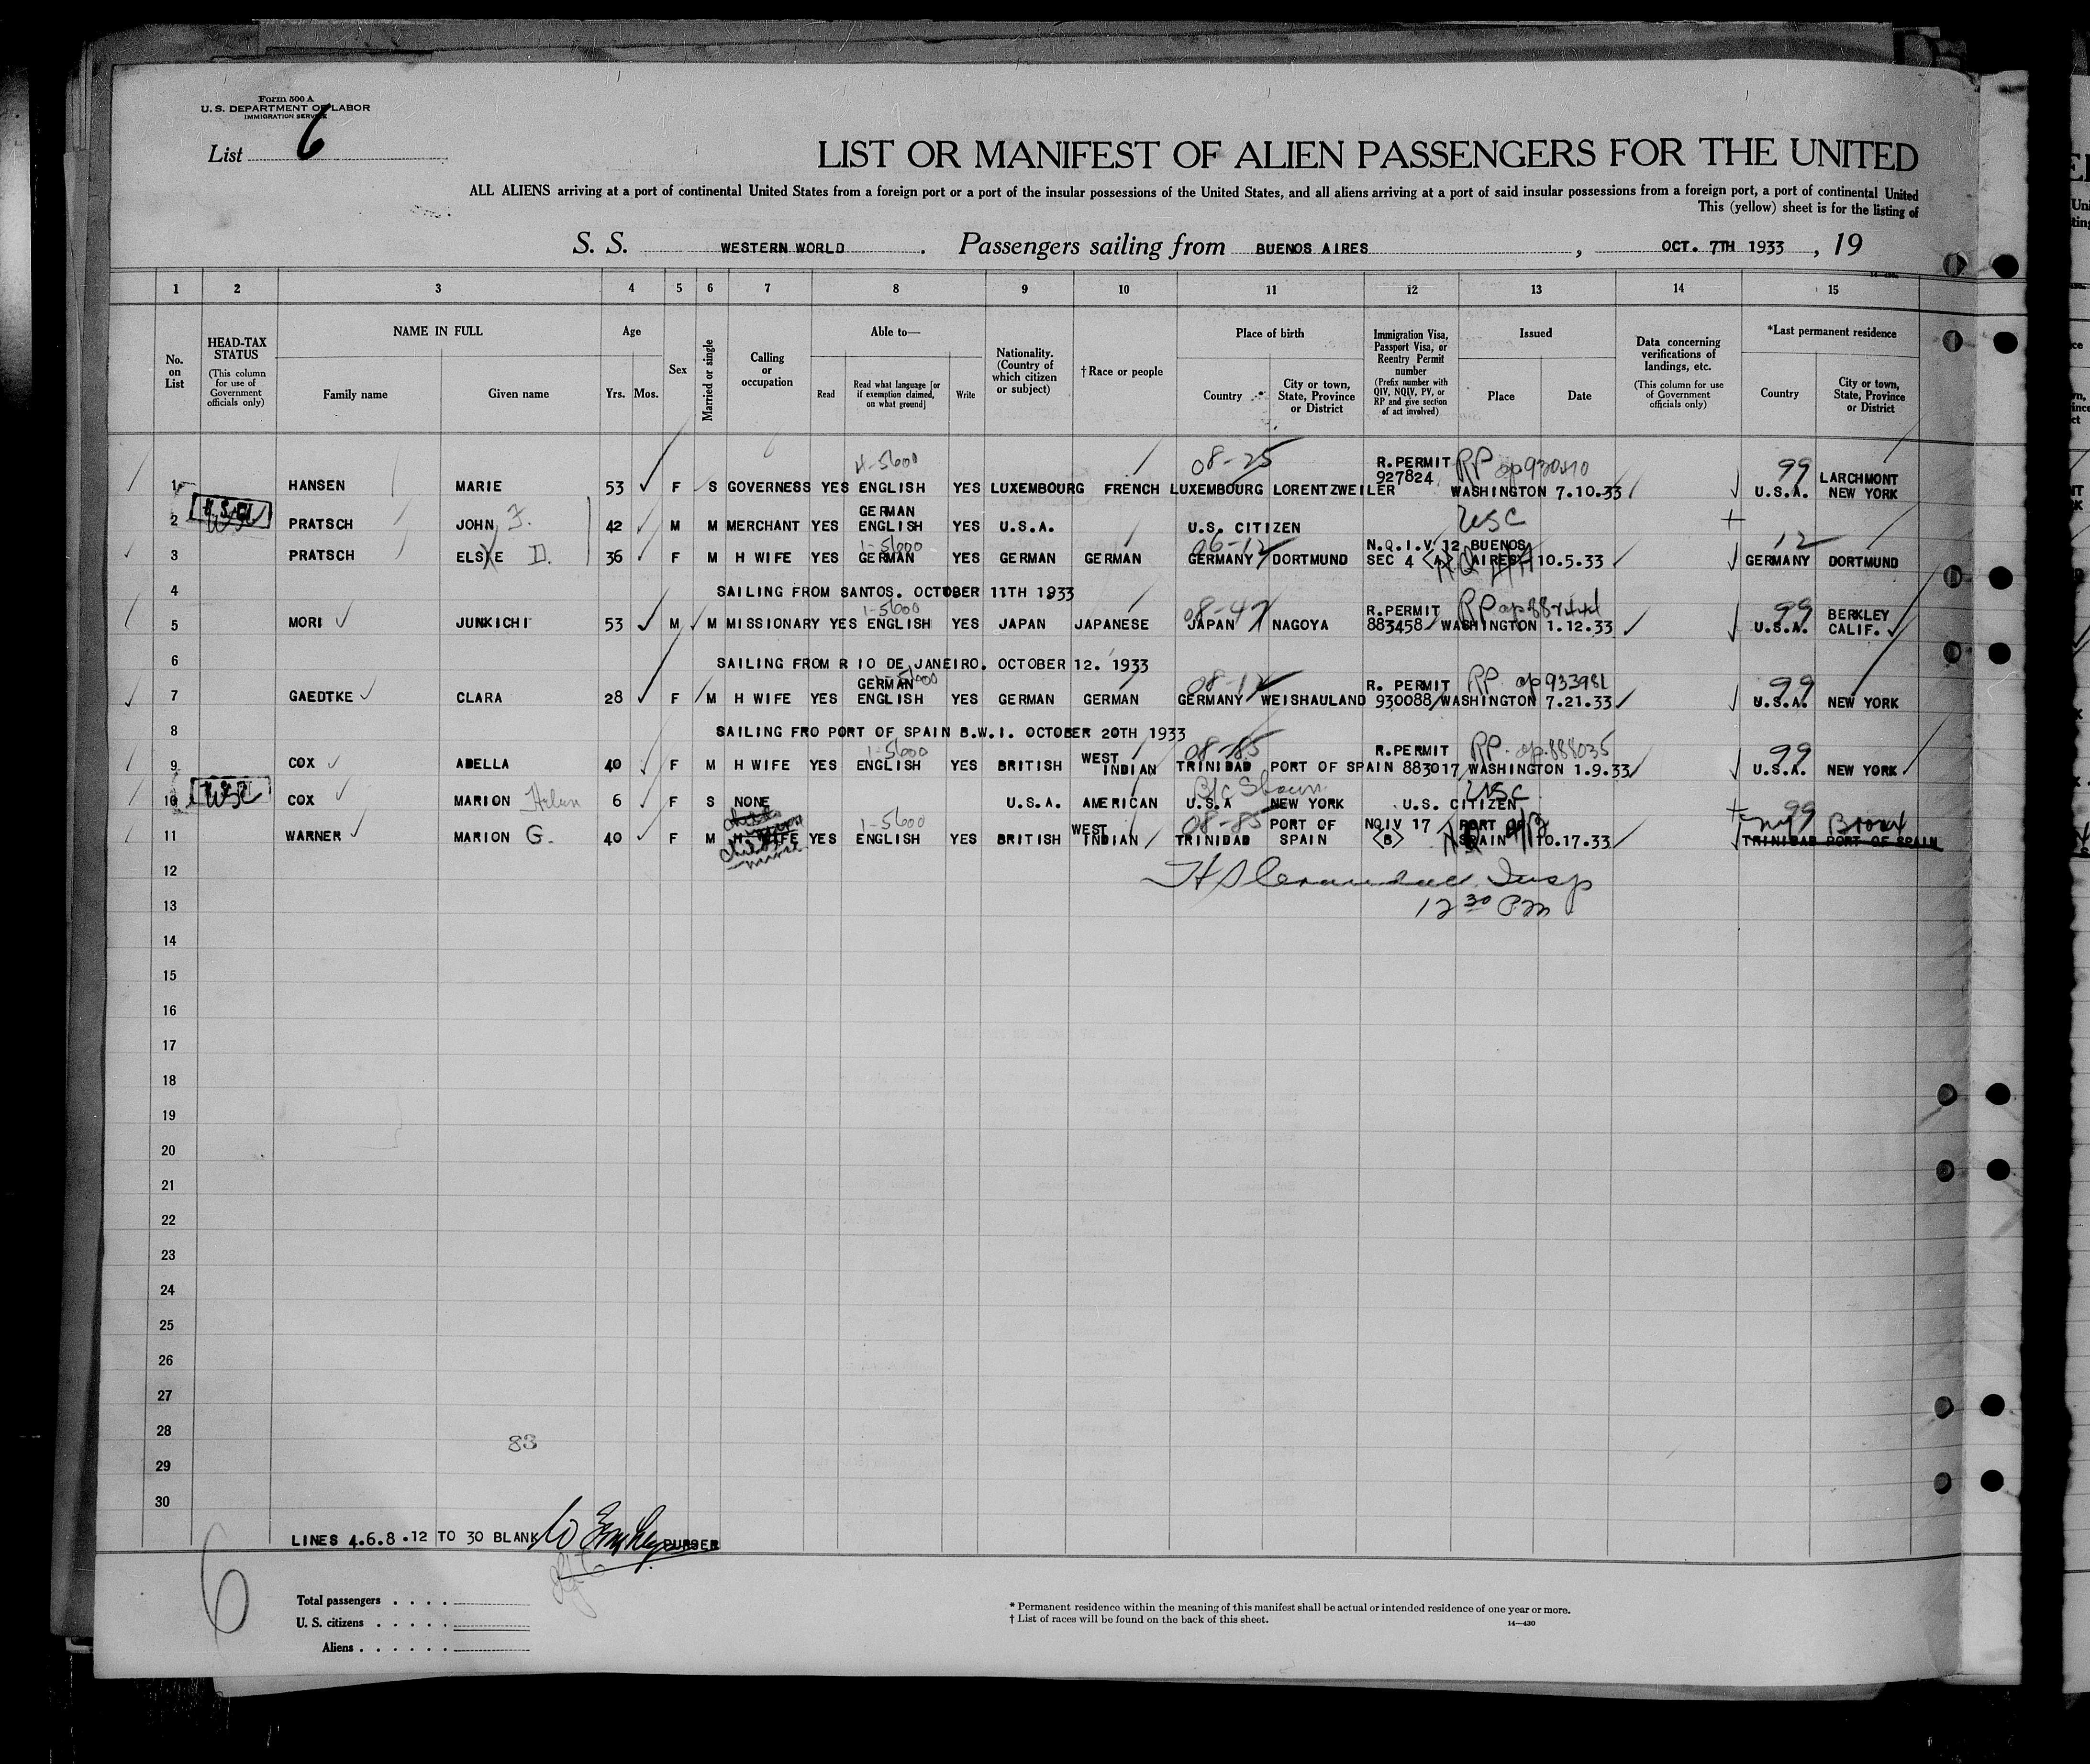 Form 500 A
U. S. DEPARTMENT OF LABOR
IMMIGRATION SERVICE
List 6
LIST OR MANIFEST OF ALIEN PASSENGERS FOR THE UNITED
ALL ALIENS arriving at a port of continental United States from a foreign port or a port of the insular possessions of the United States, and all aliens arriving at a port of said insular possessions from a foreign port, a port of continental United
This (yellow) sheet is for the listing of
S. S. WESTERN WORLD . Passengers sailing from BUENOS AIRES , OCT. 7TH 1933 , 19
1 2 3 4 5 6 7 8 9 10 11 12 13 14 15
No. on List
HEAD-TAX STATUS (This column for use of Government officials only)
NAME IN FULL Family name Given name
Age Yrs. Mos.
Sex
Married or single
Calling or occupation
Able to— Read Read what language [or if exemption claimed, on what ground] Write
Nationality. (Country of which citizen or subject)
†Race or people
Place of birth Country City or town, State, Province or District
Immigration Visa, Passport Visa, or Reentry Permit number (Prefix number with QIV, NQIV, PV, or RP and give section of act involved)
Issued Place Date
Data concerning verifications of landings, etc. (This column for use of Government officials only)
*Last permanent residence Country City or town, State, Province or District
4-5600 08-25 R.PERMIT RP 99 LARCHMONT
1 HANSEN MARIE 53 F S GOVERNESS YES ENGLISH YES LUXEMBOURG FRENCH LUXEMBOURG LORENTZWEILER 927824 WASHINGTON 7.10.33 U.S.A. NEW YORK
GERMAN
2 PRATSCH JOHN F. 42 M M MERCHANT YES ENGLISH YES U.S.A. U.S. CITIZEN USC
1-5600 06-12 N.Q.I.V 12 BUENOS 12
3 PRATSCH ELSKE D. 36 F M H WIFE YES GERMAN YES GERMAN GERMAN GERMANY DORTMUND SEC 4 AIRES 10.5.33 GERMANY DORTMUND
4 SAILING FROM SANTOS. OCTOBER 11TH 1933
1-5600 08-47 R.PERMIT RP 99 BERKLEY
5 MORI JUNKICHI 53 M M MISSIONARY YES ENGLISH YES JAPAN JAPANESE JAPAN NAGOYA 883458 WASHINGTON 1.12.33 U.S.A. CALIF.
6 SAILING FROM R IO DE JANEIRO. OCTOBER 12. 1933
GERMAN 08-12 R. PERMIT RP 99
7 GAEDTKE CLARA 28 F M H WIFE YES ENGLISH YES GERMAN GERMAN GERMANY WEISHAULAND 930088 WASHINGTON 7.21.33 U.S.A. NEW YORK
8 SAILING FRO PORT OF SPAIN B.W.I. OCTOBER 20TH 1933
1-5600 WEST 08-85 R.PERMIT RP 99
9 COX ADELLA 40 F M H WIFE YES ENGLISH YES BRITISH INDIAN TRINIDAD PORT OF SPAIN 883017 WASHINGTON 1.9.33 U.S.A. NEW YORK
10 USC COX MARION Helen 6 F S NONE U.S.A. AMERICAN U.S.A NEW YORK U.S. CITIZEN USC
1-5600 WEST 08-85 PORT OF NQIV 17 PORT OF 99 Bronx
11 WARNER MARION G. 40 F M H WIFE YES ENGLISH YES BRITISH INDIAN TRINIDAD SPAIN <B> SPAIN 10.17.33 TRINIDAD PORT OF SPAIN
12
Insp
13 12 30 PM
14
15
16
17
18
19
20
21
22
23
24
25
26
27
28
83
29
30
LINES 4.6.8 .12 TO 30 BLANK PURSER
6
Total passengers
U. S. citizens
Aliens
* Permanent residence within the meaning of this manifest shall be actual or intended residence of one year or more.
† List of races will be found on the back of this sheet.
14—430